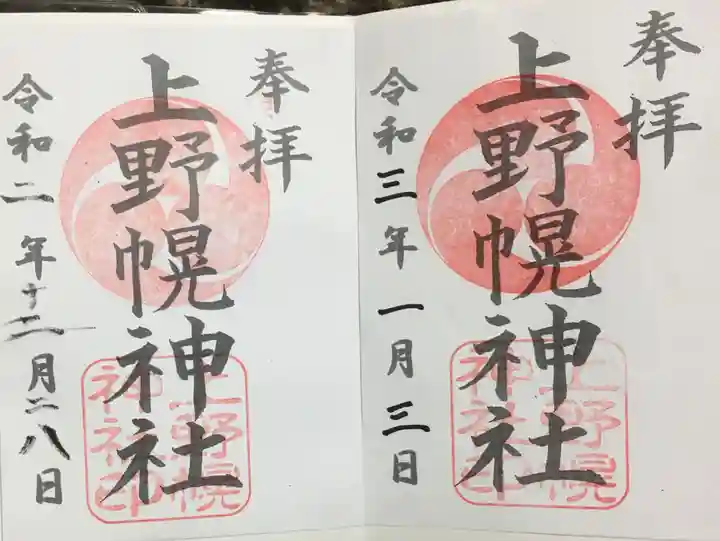 奉拝
上野幌神社
令和三年一月三日
上野幌
神社印
奉拝
上野幌神社
令和二年十二月二八日
上野幌
神社印